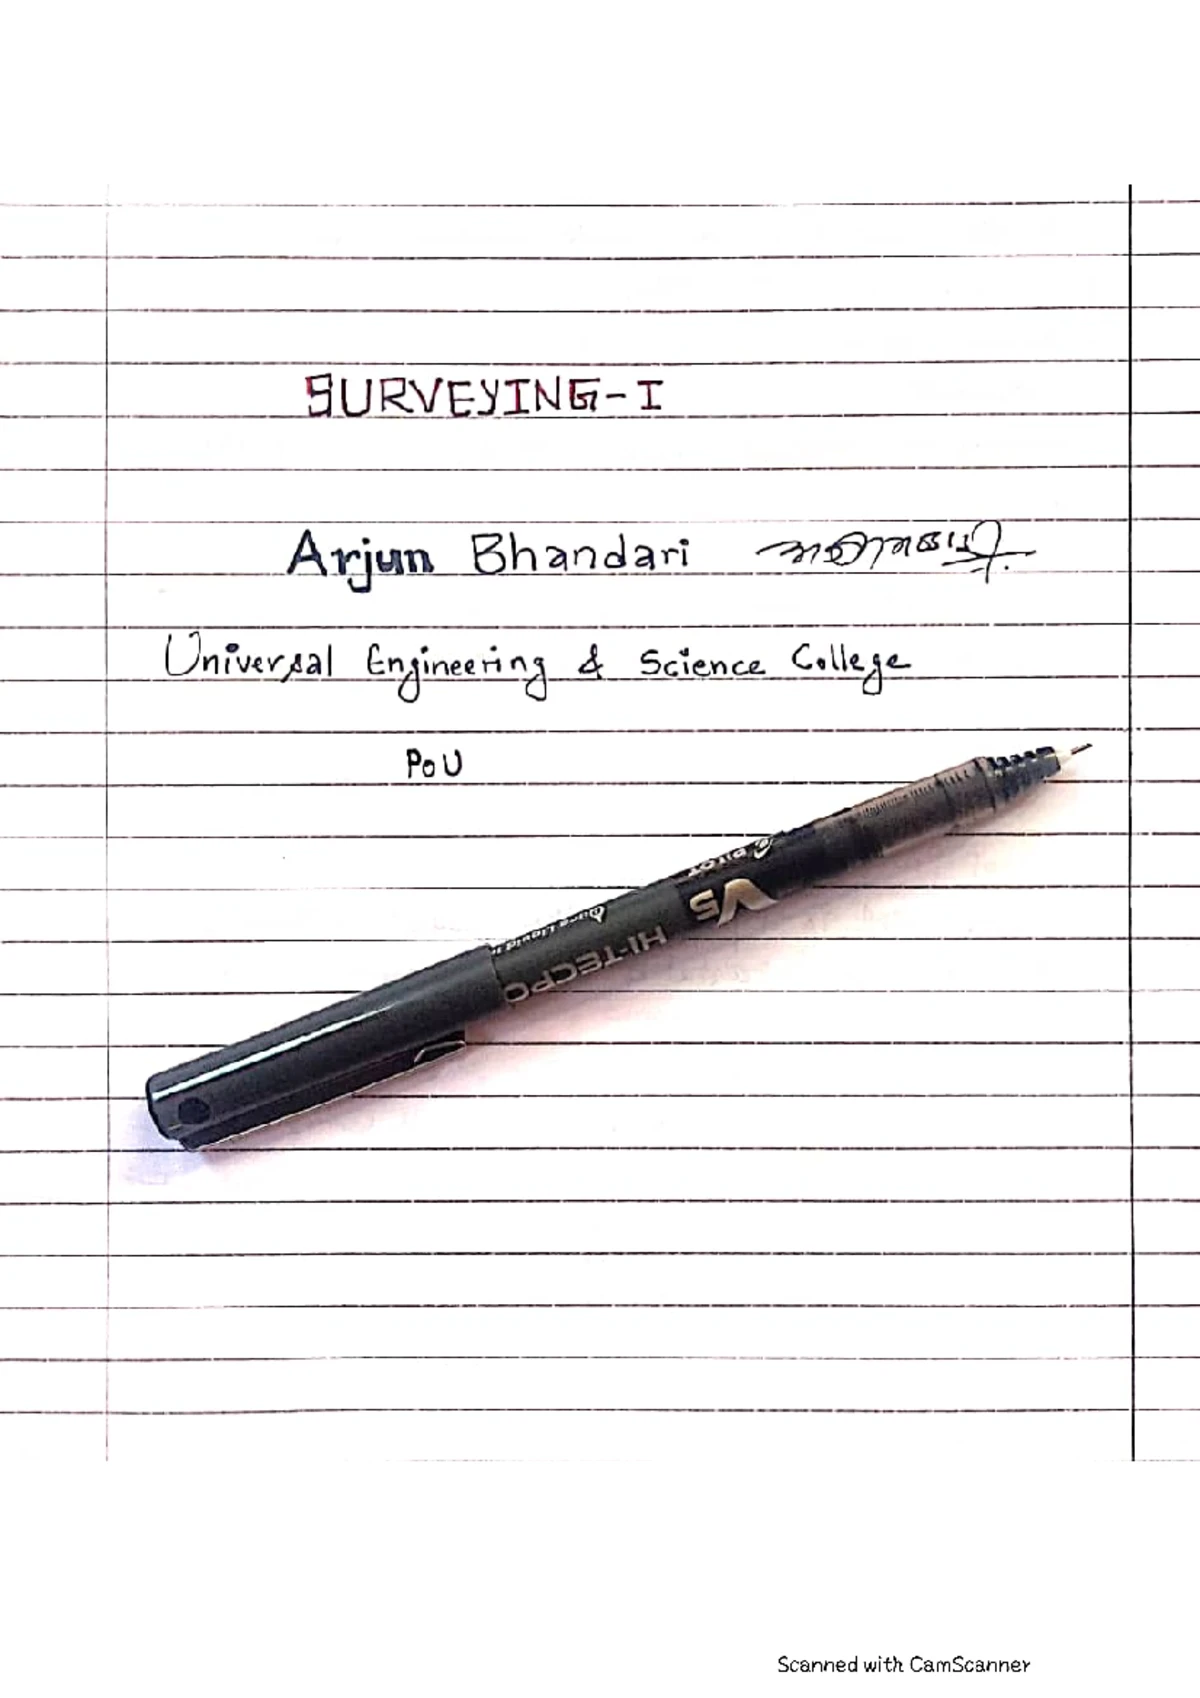 SURVEYING-I
Arjun Bhandari
Universal Engineering & Science College
PoU
PILOT
V5
HI-TECPO
Pure Liquid
Scanned with CamScanner